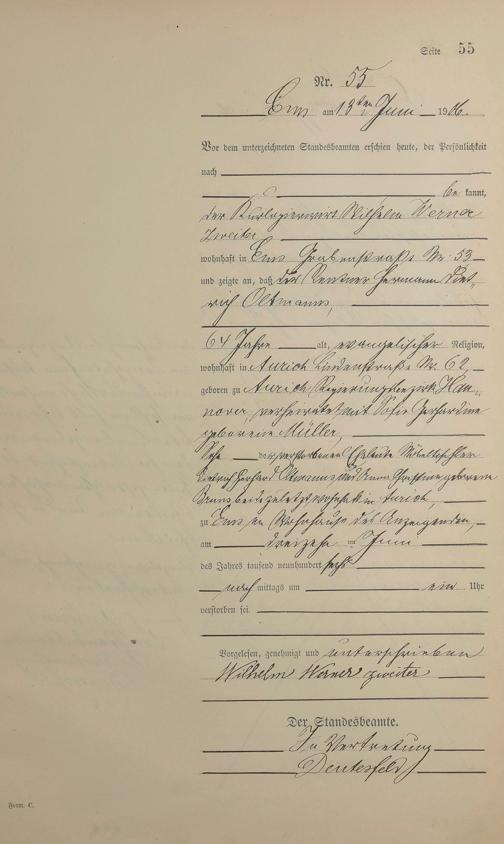 Seite 55
Nr. 55
Ems am 13ten Juni 1906.
Vor dem unterzeichneten Standesbeamten erschien heute, der Persönlichkeit
nach
be kannt,
der Kurlogierwirt Wilhelm Werner
zweiter
wohnhaft in Ems Grabenstraße Nr. 53
und zeigte an, daß der Rentner Hermann Diet-
rich Oltmanns,
64 Jahre alt, evangelischer Religion,
wohnhaft in Aurich Lindenstraße Nr. 62,
geboren zu Aurich Regierungsbezirk Han-
nover, verheiratet mit Sofie Gerhardine
geborene Müller,
Sohn der verstorbenen Eheleute
Dietrich Gerhard Oltmanns und Anna geborene
Bruns beide zuletzt wohnhaft in Aurich,
zu Ems im Wohnhause des Anzeigenden,
am dreizehn ten Juni
des Jahres tausend neunhundert sechs
nach mittags um ein Uhr
verstorben sei.
Vorgelesen, genehmigt und unterschrieben
Wilhelm Werner zweiter
Der Standesbeamte.
In Vertretung
Form. C.